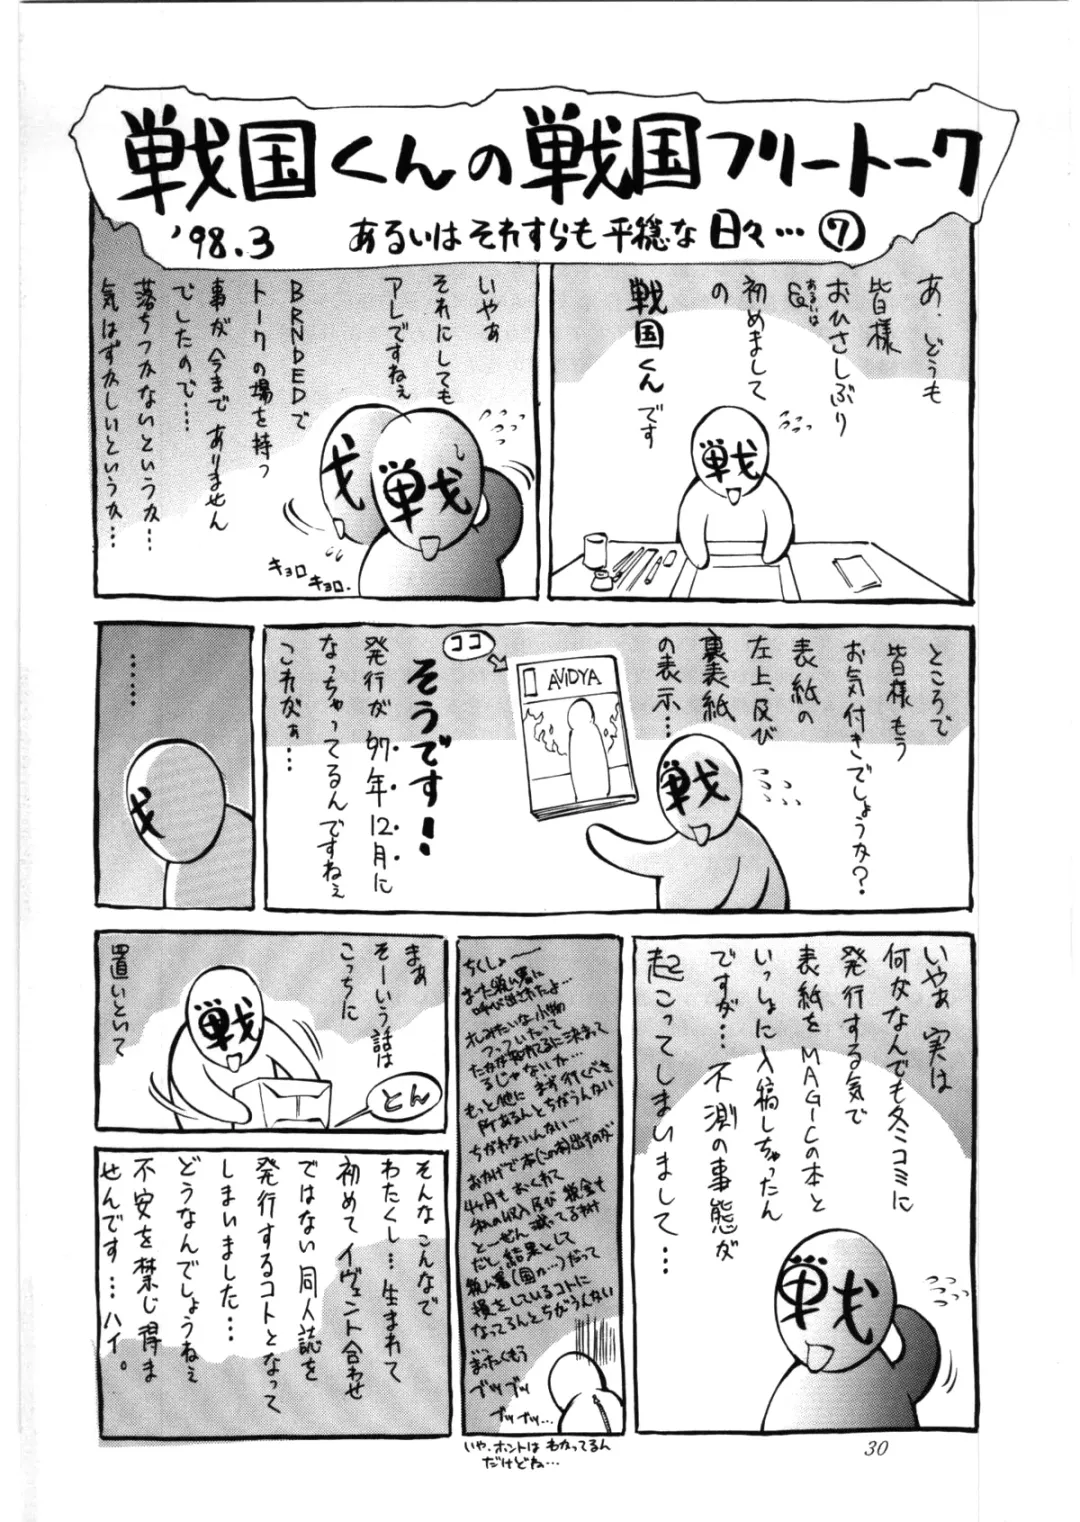 戦国くんの戦国フリートーク
'98.3 あるいはそれすらも平穏な日々… ⑦
あ、どうも
皆様
おひさしぶり
あるいは
初めまして
の
戦国くんです
戦
いやぁ
それにしても
アレですねぇ
BRNDEDで
トークの場を持つ
事が今までありません
でしたので…
落ちつかないというか…
気はずかしいというか…
戦
キョロ
キョロ.
ところで
皆様もう
お気付きでしょうか?
表紙の
左上、及び
裏表紙
の表示…
ココ
AVIDYA
戦
そうです!
発行が'97年12月に
なっちゃってるんですねぇ
これがぁ…
……
いやぁ 実は
何がなんでも冬コミに
発行する気で
表紙をMAGICの本と
いっしょに入稿しちゃったん
ですが… 不測の事態が
起こってしまいまして…
戦
ちくしょ〜
また税ム署に
呼び出されたよ…
オレみたいな小物
つっついたって
たかが知れてるに決まって
るじゃないか…
もっと他にまず行くべき
所あるんとちがうんない
ちがわないんない…
おかげで本(この本)出すのが
4ヶ月もおくれて
私の収入及び税金も
と〜ぜん減ってるわけ
だし、結果として
税ム署(国か…)だって
損をしているコトに
なってるんとちがうんない
まったくもう
ブツブツ
ブツブツ…
いや、ホントはわかってるん
だけどね…
まぁ
そーいう話は
こっちに
置いといて
戦
とん
そんなこんなで
わたくし… 生まれて
初めてイヴェント合わせ
ではない同人誌を
発行するコトとなって
しまいました…
どうなんでしょうねぇ
不安を禁じ得ま
せんです…ハイ。
30